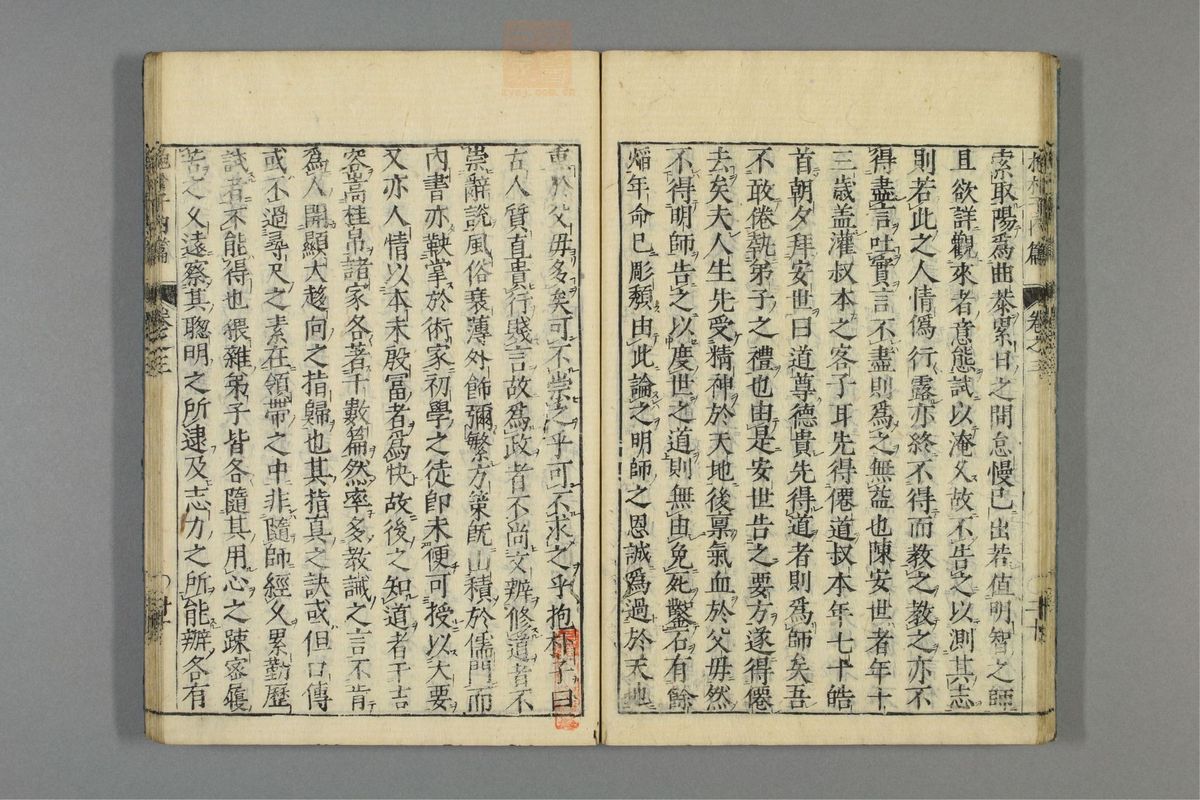 索取陽爲曲恭累日之間怠慢已出若値明智之師
且欲詳觀來者意態試以淹久故不告之以測其志
則若此之人情僞行露亦終不得而教之教之亦不
得盡言吐實言不盡則爲之無益也陳安世者年十
三歲盖灌叔本之客子耳先得僊道叔本年七十皓
首朝夕拜安世曰道尊德貴先得道者則爲師矣吾
不敢倦執弟子之禮也由是安世告之要方遂得僊
去矣夫人生先受精神於天地後稟氣血於父毋然
不得明師告之以度世之道則無由免死鑿石有餘
焰年命已彫頹由此論之明師之恩誠爲過於天地
重於父毋多矣可不崇之乎可不求之乎抱朴子曰
古人質直貴行賤言故爲政者不尚文辨修道者不
崇辭說風俗衰薄外飾彌繁方策旣山積於儒門而
内書亦鞅掌於術家初學之徒卽未便可授以大要
又亦人情以本末殷冨者爲快故後之知道者干吉
容嵩桂帛諸家各著千數篇然率多教誡之言不肯
爲人開顯大趍向之指歸也其指真之訣或但口傳
或不過尋尺之素在領帶之中非隨師經久累勤歷
試者不能得也猥雜弟子皆各隨其用心之踈密履
苦之久遠察其聰明之所逮及志力之所能辨各有
抱朴子内篇
卷之三
抱朴子内篇
卷之三
廿一